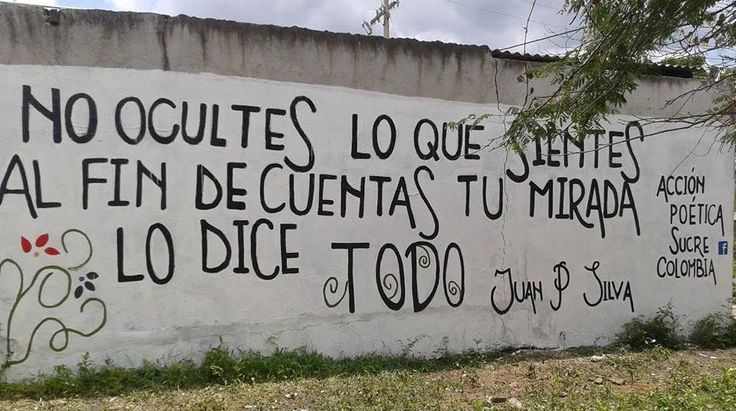 NO OCULTES LO QUE SIENTES
AL FIN DE CUENTAS TU MIRADA
LO DICE TODO
JUAN P SILVA
ACCIÓN
POÉTICA
SUCRE f
COLOMBIA